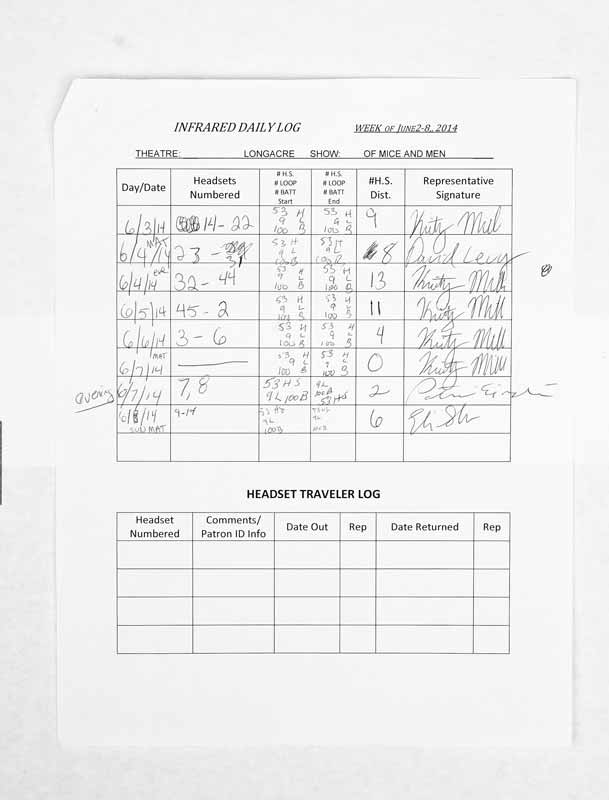 INFRARED DAILY LOG WEEK OF JUNE2-8, 2014
THEATRE: LONGACRE SHOW: OF MICE AND MEN
Day/Date Headsets Numbered # H.S. # LOOP # BATT Start # H.S. # LOOP # BATT End #H.S. Dist. Representative Signature
6/3/14 14-22 53 H 9 L 100 B 53 H 9 L 100 B 9 Kitty Mill
6/4/14 MAT 23-31 53 H 9 L 100 B 53 H 9 L 100 B 8 David Levy
6/4/14 EVE 32-44 53 H 9 L 100 B 53 H 9 L 100 B 13 Kitty Mill
6/5/14 45-2 53 H 9 L 100 B 53 H 9 L 100 B 11 Kitty Mill
6/6/14 3-6 53 H 9 L 100 B 53 H 9 L 100 B 4 Kitty Mill
6/7/14 MAT 53 H 9 L 100 B 53 H 9 L 100 B 0 Kitty Mill
evening 6/7/14 7,8 53 HS 9L 100B 9L 100B 53HS 2
6/8/14 SUN MAT 9-14 53 HS 9L 100B 9L 6
HEADSET TRAVELER LOG
Headset Numbered Comments/ Patron ID Info Date Out Rep Date Returned Rep